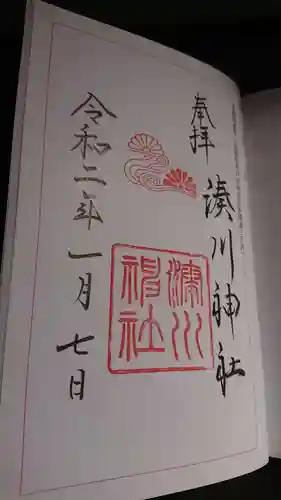 奉拝
湊川神社
湊川神社
令和二年一月七日